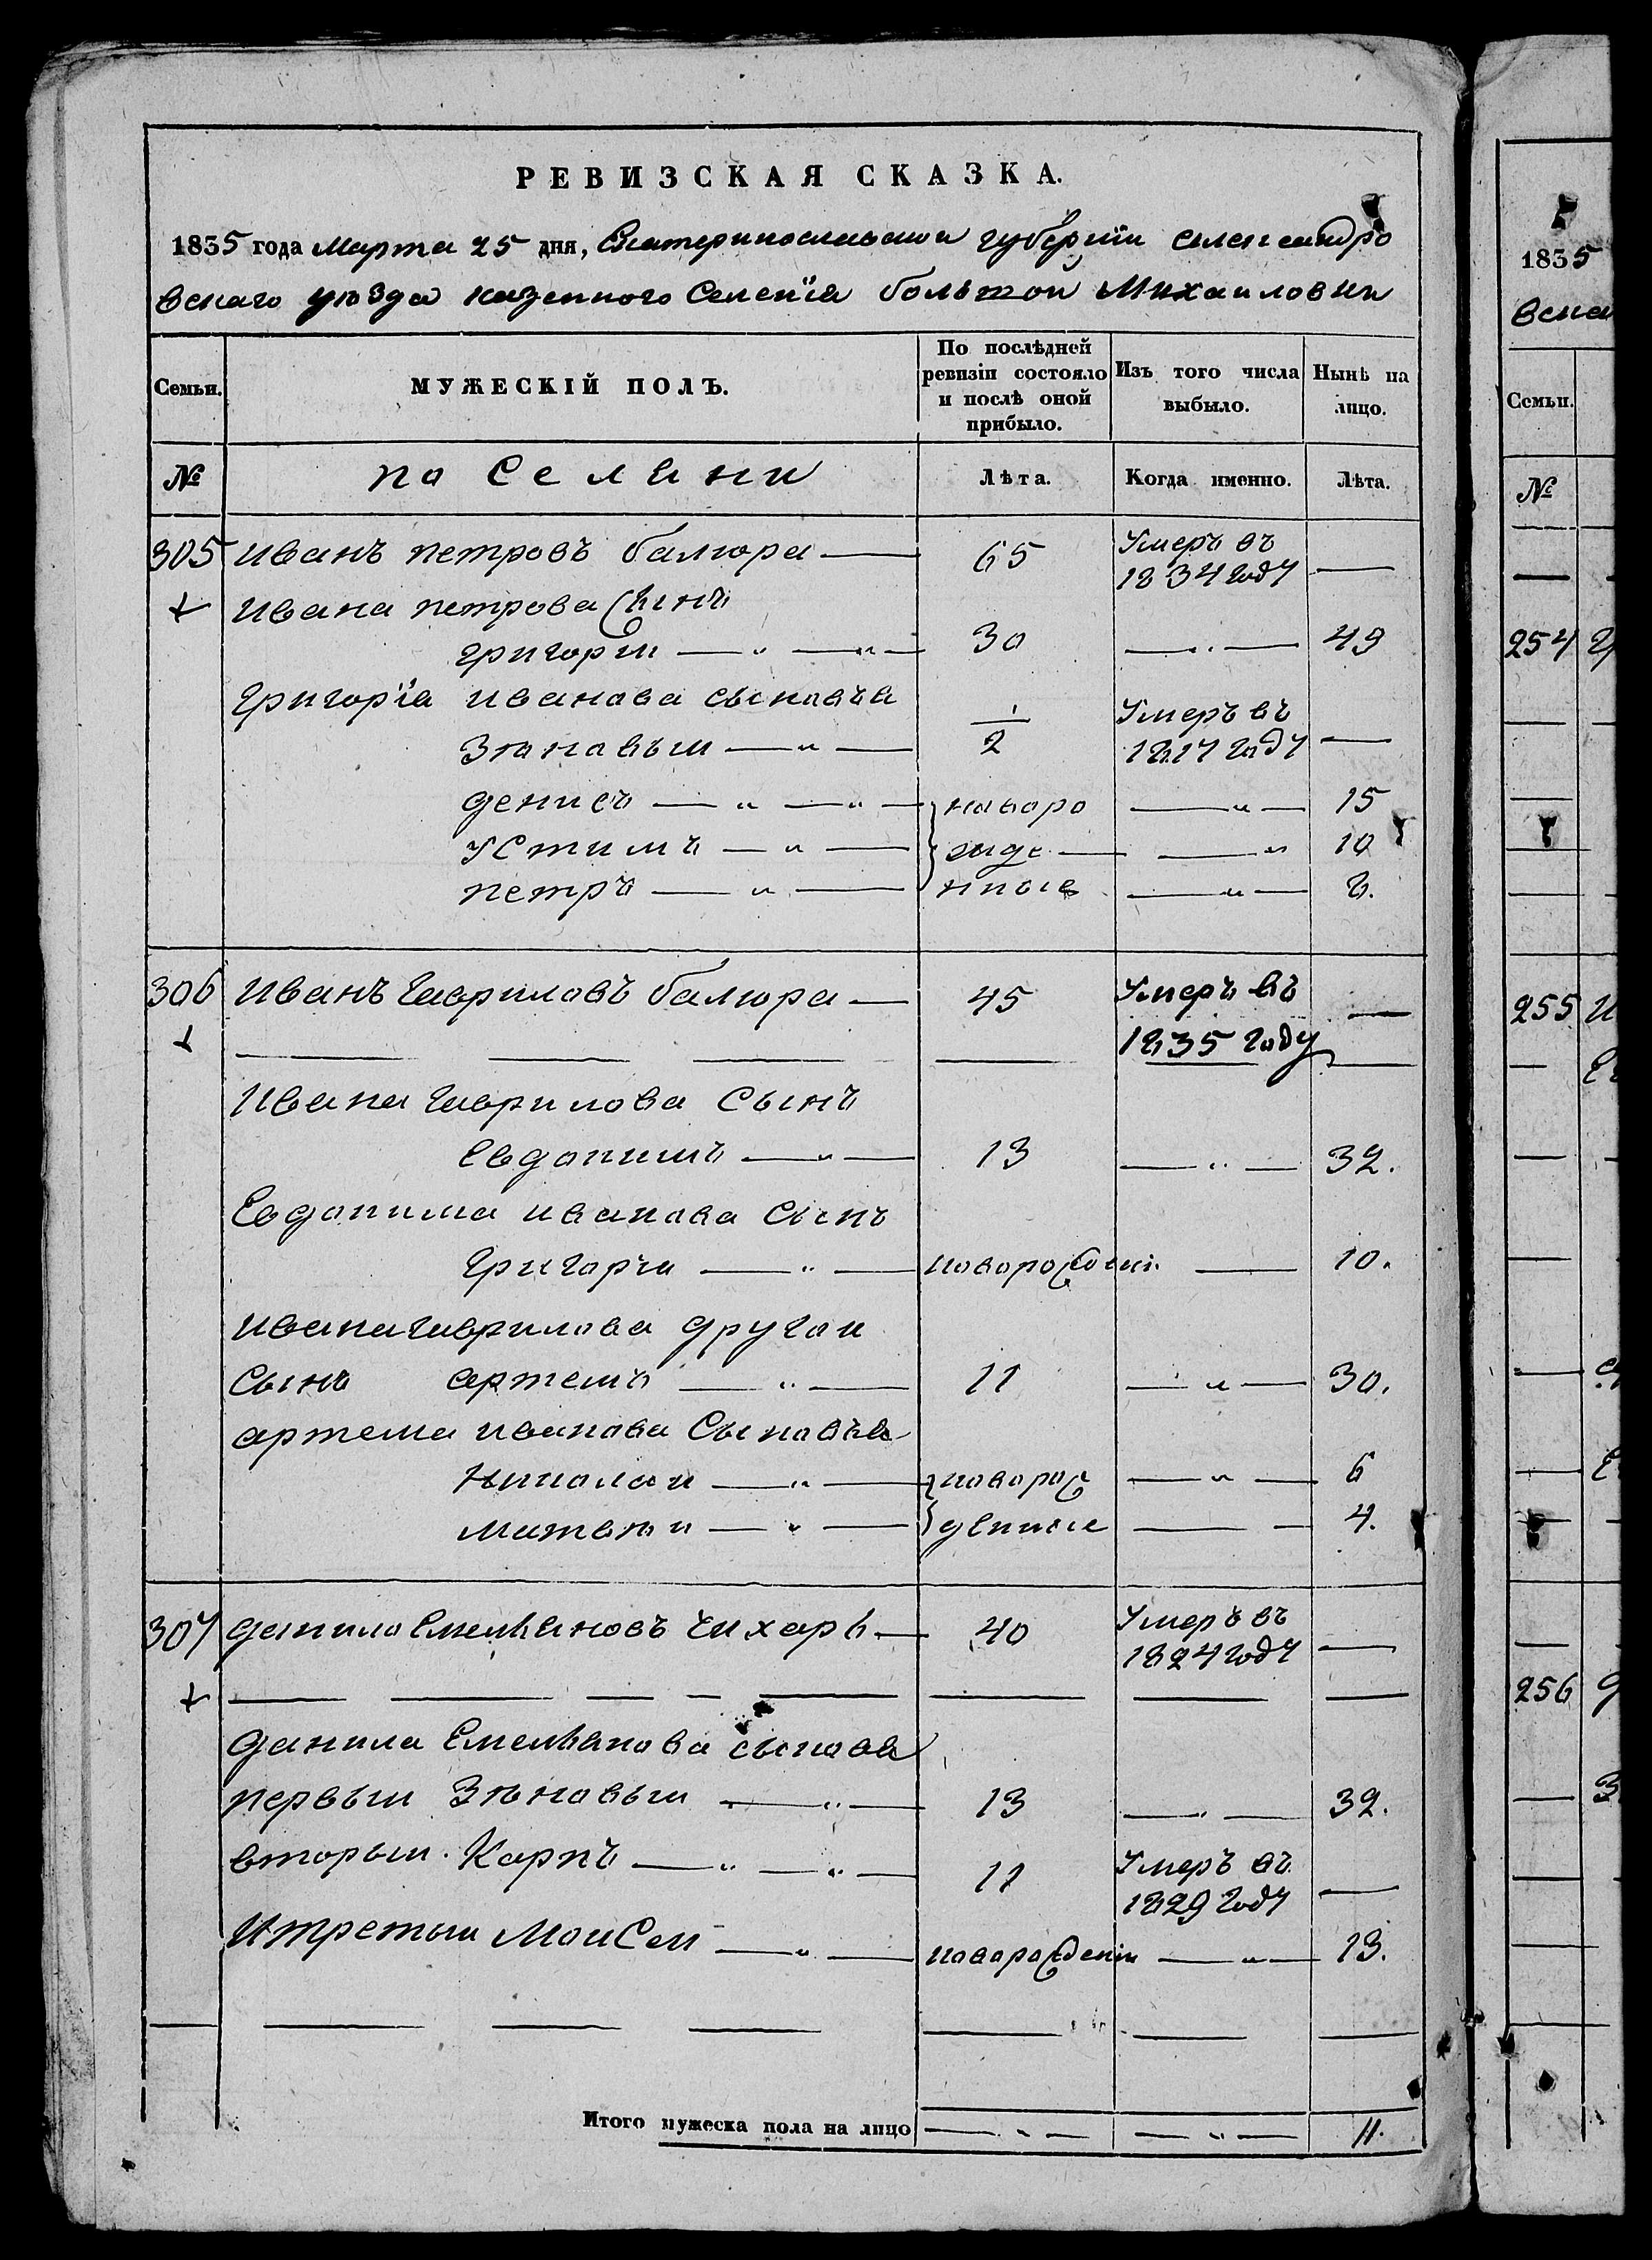 РЕВИЗСКАЯ СКАЗКА.
1835 года Марта 25 дня, Екатеринославской губернїи Александро
вскаго уѣзда казенного Селенїя большой Михаиловки
Семьи.
МУЖЕСКІЙ ПОЛЪ.
По послѣдней ревизіи состояло и послѣ оной прибыло.
Изъ того числа выбыло.
Нынѣ на лицо.
№
поселяни
Лѣта.
Когда именно.
Лѣта.
305 Иванъ петровъ балюра — 65 Умеръ въ 1834 году —
Ивана петрова Сынъ
григории — " — " — 30 — " — 49
Григорїя иванова сыновъя
Зѣновыи — " — 1/2 Умеръ въ 1817 году —
денисъ — " — " — новоро — " — 15
Устимъ — " — жде — — " 10
петръ — " — нные — " — 8.
306 Иванъ гавриловъ балюра — 45 Умеръ въ —
1835 году
Ивана гаврилова Сынъ
Евдокимъ — " — 13 — " — 32.
Евдокима иванова Сынъ
Григории — " — новорожден. — 10.
Ивана гаврилова другои
Сынъ артемъ — " — 11 — " — 30.
артема иванова Сыновъя
Николаи — " — новорож — " — 6
Матвѣи — " — денные — — 4.
307 данило Емельяновъ чихарь — 40 Умеръ въ 1824 году —
данила Емельянова сыновя
первыи Зѣновыи — " — 13 — " — 32.
вторыи Карпъ — " — " — 11 Умеръ въ 1829 году —
И третыи Моисеи — " — новорожденни — " — 13.
Итого мужеска пола на лицо — " — — " — 11.
1835
вска
Семьи.
№
254
255
256